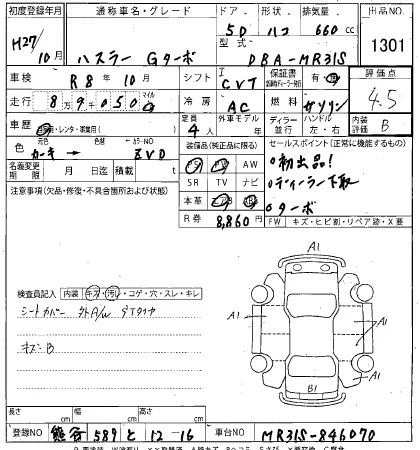 初度登録年月 通称車名・グレード ドア 形状 排気量 出品NO
H27/10月 ハスラー Gターボ 5D ハコ 660 cc 1301
型式 DBA-MR31S
車検 R8年10月 シフト CVT 保証書 有・無 評価点 4.5
走行 89,050 マイル km 冷房 AC 燃料 ガソリン
車歴 自家用・レンタ・事業用( ) 定員 4人 外車モデル 年 ディーラー 並行 ハンドル 左・右 内装評価 B
元色 カーキ → 色替 カラーNO ZVD 装備品(純正品に限る) セールスポイント(正常に機能するもの)
名義変更期限 月 日迄 積載 t PS PW AW ○初出品!
注意事項(欠品・修復・不具合箇所および状態) SR TV ナビ ○ディーラー下取
本革 エアB ABS ○ターボ
R券 8,860円 FW キズ・ヒビ割・リペア跡・X要
検査員記入 内装 キズ・汚レ・コゲ・穴・スレ・キレ
シートカバー 外A/W
キズ:B
A1
A1
A1
A1
B1
長さ cm 幅 cm 高さ cm
登録NO 熊谷 589 と 12-16 車台NO MR31S-846070